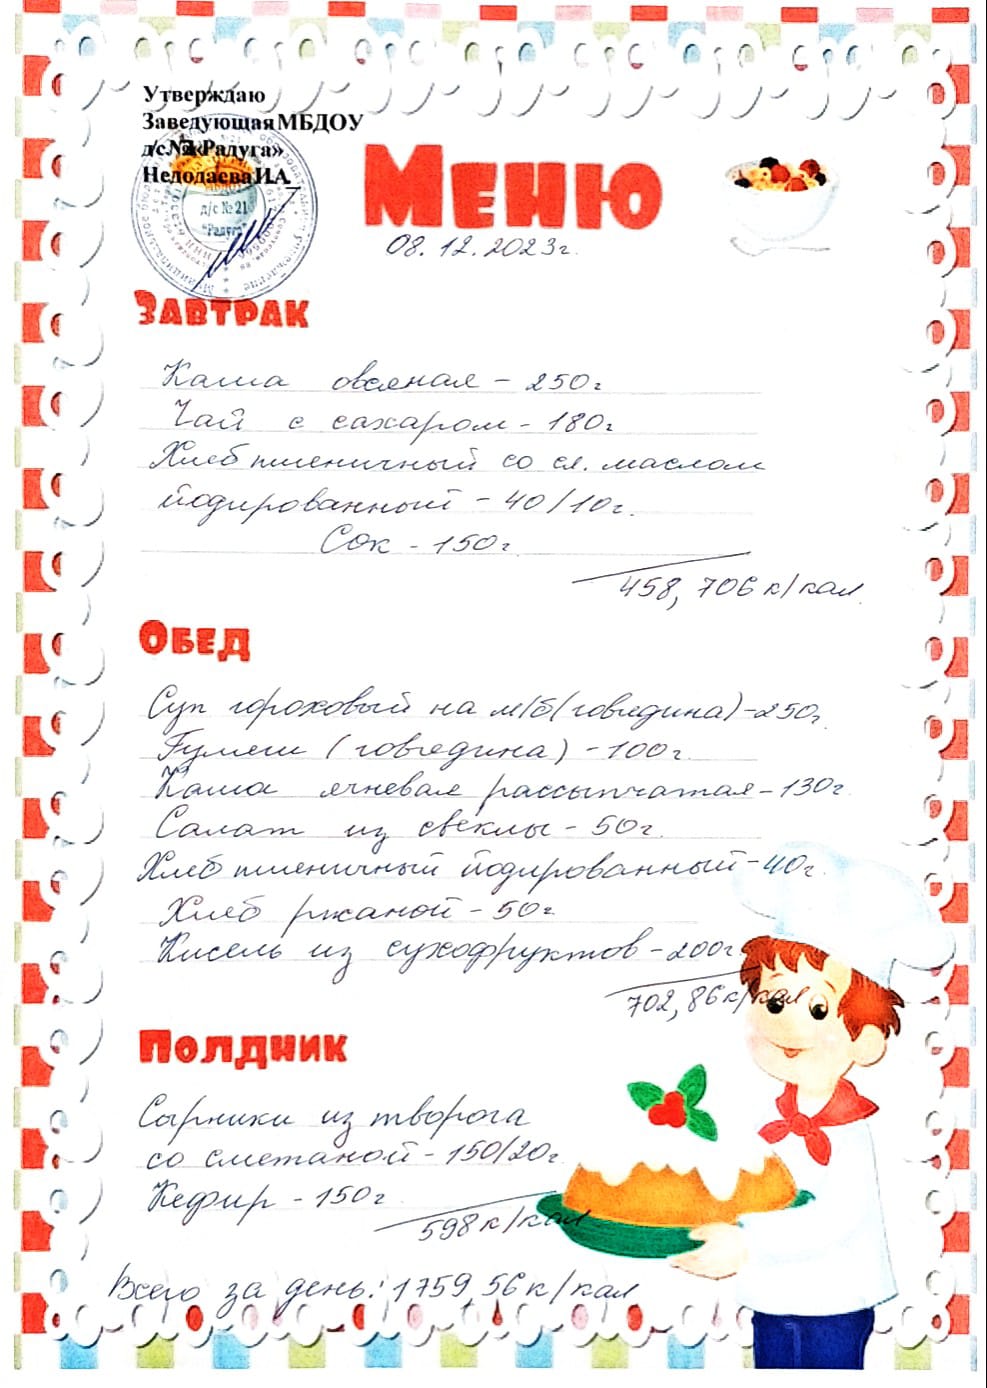 Утверждаю
Заведующая МБДОУ
д/с№21«Радуга»
Недодаева И.А.
д/с № 21
"Радуга"
Меню
08.12.2023г.
Завтрак
Каша овсяная - 250г
Чай с сахаром - 180г
Хлеб пшеничный со сл. маслом
йодированный - 40/10г.
Сок - 150г
458,706 к/кал
Обед
Суп гороховый на м/б (говядина) - 250г.
Гуляш (говядина) - 100г.
Каша ячневая рассыпчатая - 130г
Салат из свеклы - 50г.
Хлеб пшеничный йодированный - 40г.
Хлеб ржаной - 50г
Кисель из сухофруктов - 200г
702,86 к/кал
Полдник
Сырники из творога
со сметаной - 150/20г.
Кефир - 150г
598 к/кал
Всего за день: 1759,56 к/кал